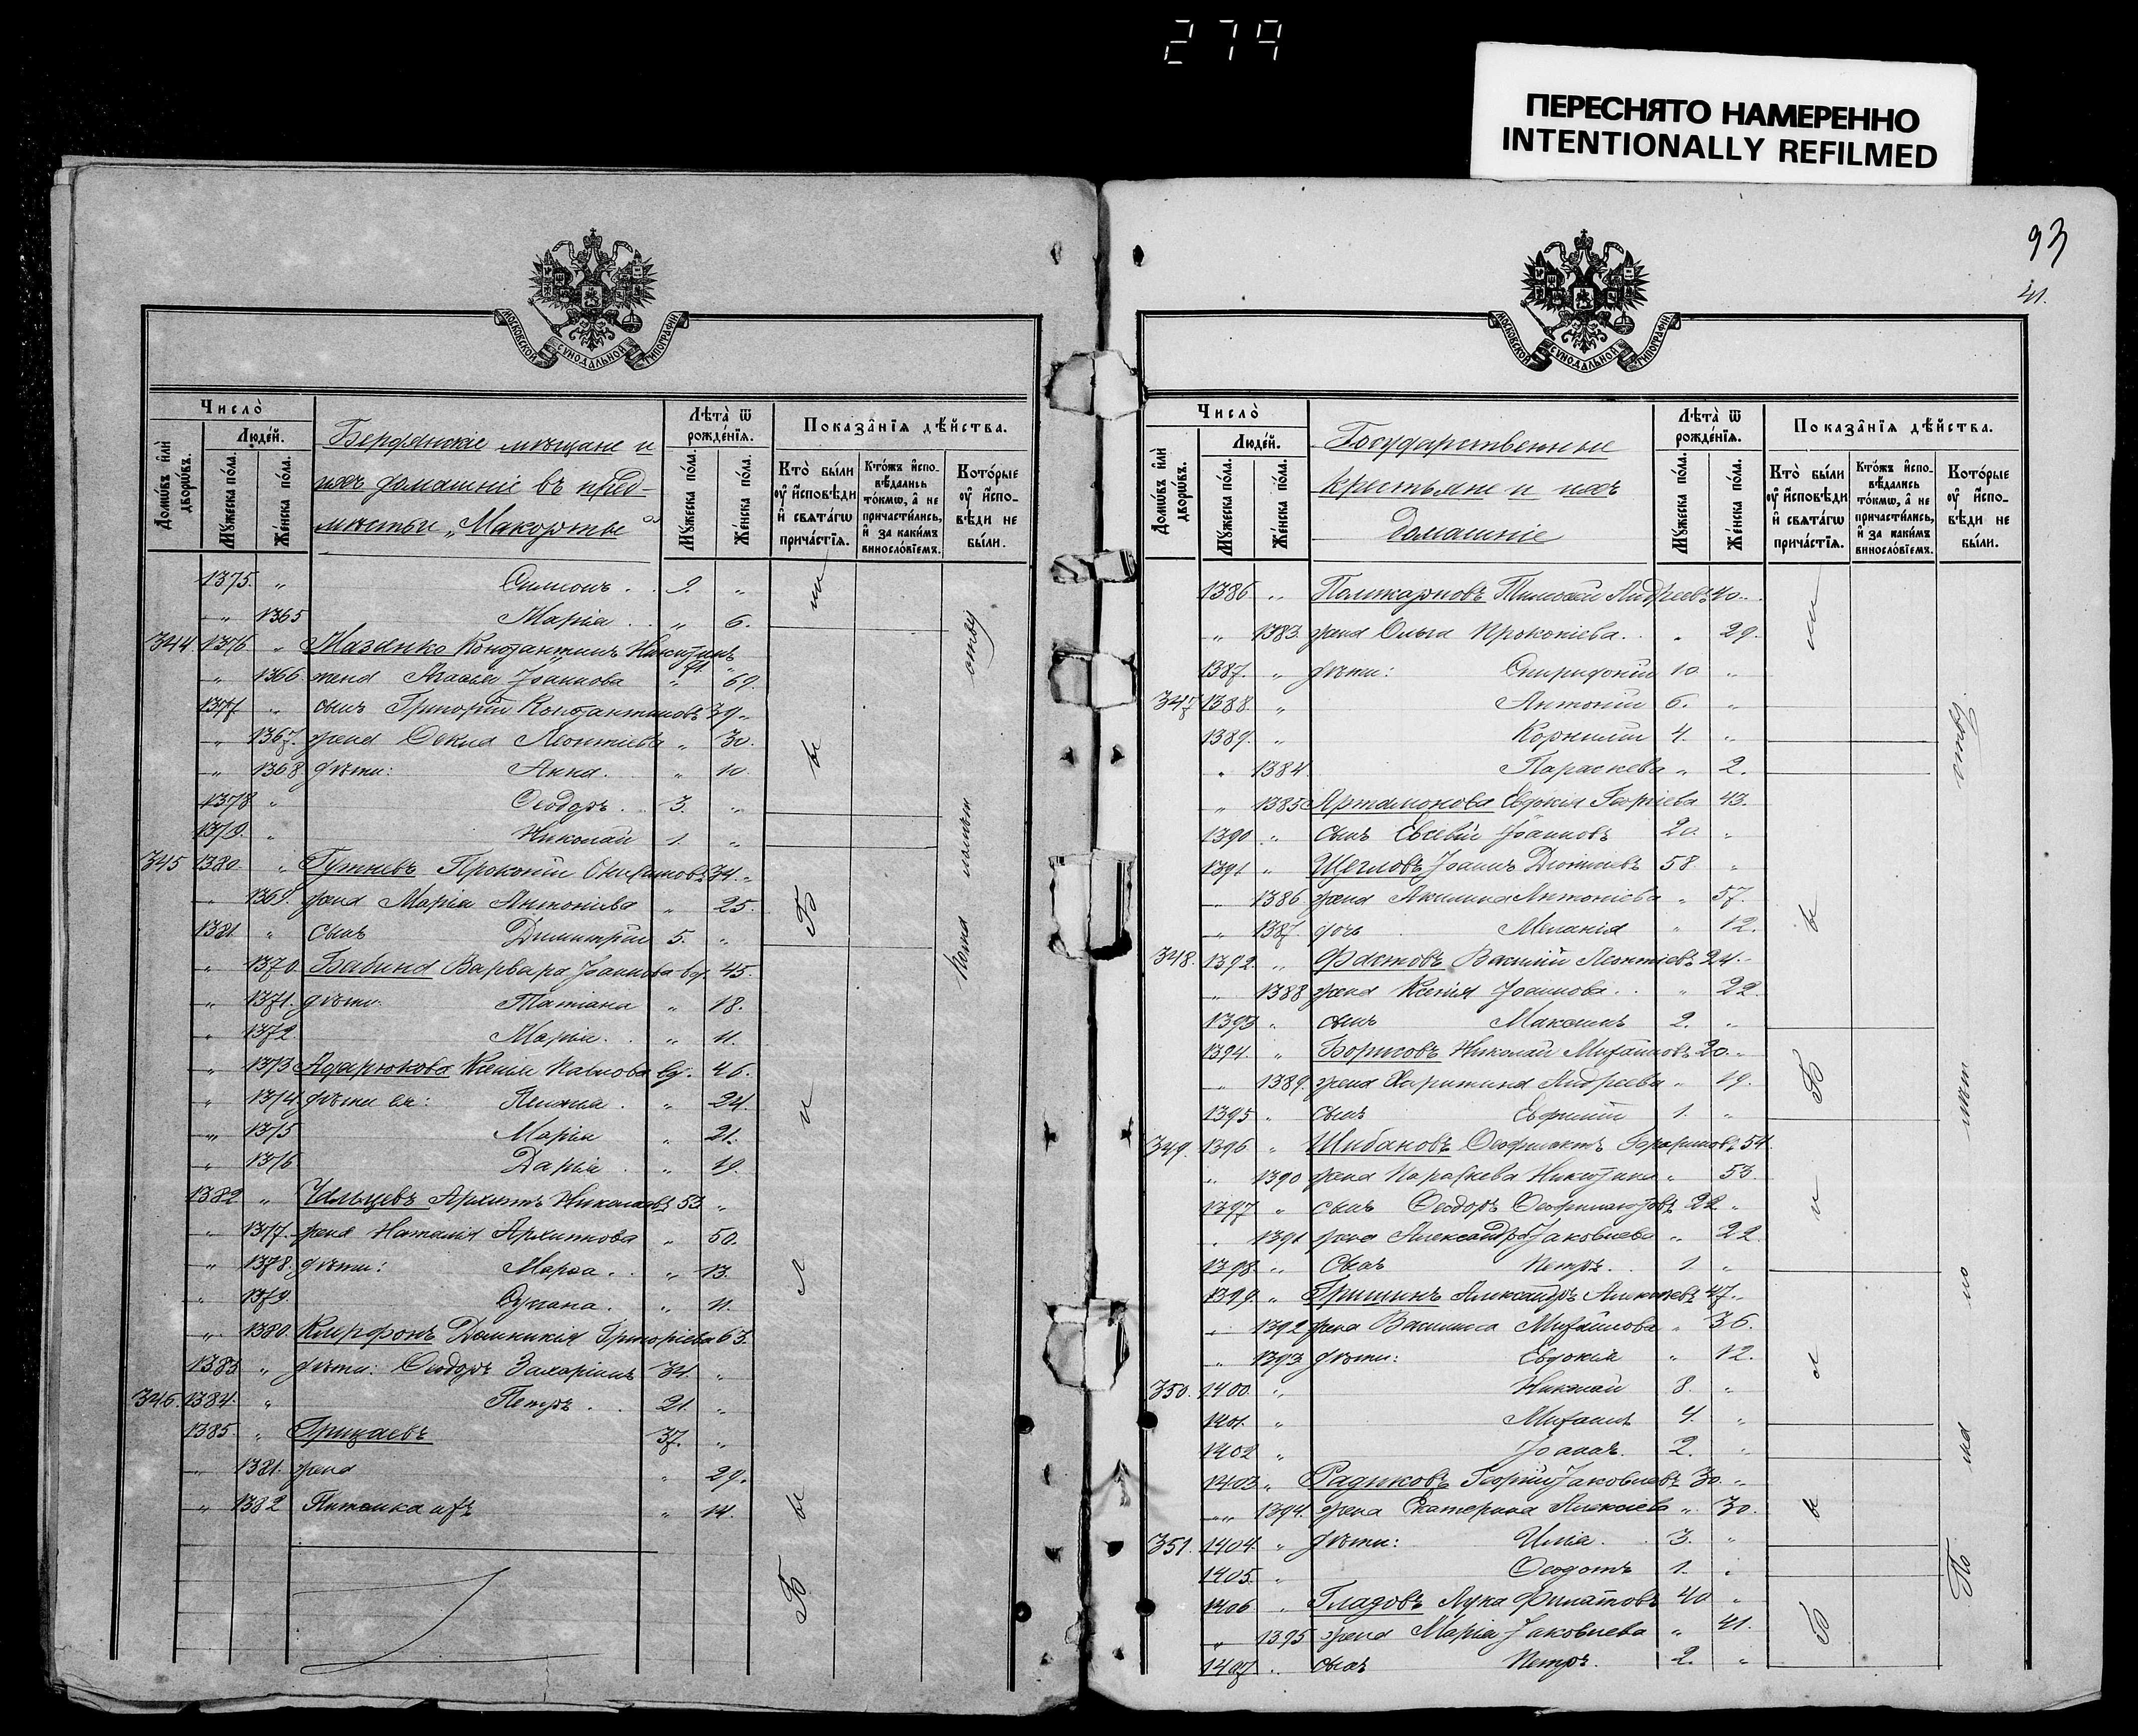 279
ПЕРЕСНЯТО НАМЕРЕННО
INTENTIONALLY REFILMED
МОСКОВСКОЙ СѴНОДАЛЬНОЙ ТИПОГРАФІИ
Число̀
Домѡ́въ и҆лѝ дворѡ́въ.
Люде́й.
Мꙋ́жеска по́ла.
Же́нска по́ла.
Бердянскіе мѣщане и
ихъ домашніе въ пред-
мѣстьи „Макорты"
Лѣта̀ ѿ рожде́нїѧ.
Мꙋ́жеска по́ла.
Же́нска по́ла.
Показа̂нїѧ дѣ́йства.
Кто̀ бы́ли оу҆ и҆сповѣ́ди и҆ свѧта́гѡ прича́стїѧ.
Кто́жъ и҆спо-вѣ́дались то́кмѡ, а҆ не причасти́лись, и҆ за каки́мъ виносло́вїемъ.
Кото́рые оу҆ и҆спо-вѣ́ди не бы́ли.
1375. „ Симеонъ . . 9. „
„ 1365 Марія . . „ 6.
344 1376 „ Мазанко Константинъ Никитинъ 71 „
„ 1366 жена Агафья Іоаннова „ 69.
1377 „ сынъ Григорій Константиновъ 39 „
„ 1367. жена Ѳекла Леонтіева „ 30.
„ 1368 дѣти: Анна. „ 10.
1378 „ Ѳеодоръ . . 3. „
1379. „ Николай 1. „
345 1380. „ Гутневъ Прокопій 34. „
„ 1369. жена Марія Антоніева „ 25.
1381. „ сынъ Димитрій 5. „
„ 1370. Бабина Варвара Іоаннова вд. 45.
„ 1371. дѣти: Татіана „ 18.
„ 1372. Марія. . „ 11.
„ 1373 Адарюкова Ксенія Павлова вд. 46.
„ 1374. дѣти ея: . „ 24.
„ 1375 Марія „ 21.
„ 1376 Дарья . „ 19.
1382 „ Архипъ Николаевъ 53 „
„ 1377. жена Наталія Архипова „ 50.
„ 1378. дѣти: Марѳа. . „ 13.
„ 1379. . „ 11.
„ 1380. Домникія Григоріева 63.
1383 „ дѣти: Ѳеодоръ Захаріинъ 34. „
346. 1384. „ Петръ . . 21. „
1385. „ Грицаевъ 37. „
„ 1381. жена „ 29.
„ 1382 ихъ „ 14.
Б ы л и Б ы
93
41.
МОСКОВСКОЙ СѴНОДАЛЬНОЙ ТИПОГРАФІИ
Число̀
Домѡ́въ и҆лѝ дворѡ́въ.
Люде́й.
Мꙋ́жеска по́ла.
Же́нска по́ла.
Государственные
крестьяне и ихъ
домашніе
Лѣта̀ ѿ рожде́нїѧ.
Мꙋ́жеска по́ла.
Же́нска по́ла.
Показа̂нїѧ дѣ́йства.
Кто̀ бы́ли оу҆ и҆сповѣ́ди и҆ свѧта́гѡ прича́стїѧ.
Кто́жъ и҆спо-вѣ́дались то́кмѡ, а҆ не причасти́лись, и҆ за каки́мъ виносло́вїемъ.
Кото́рые оу҆ и҆спо-вѣ́ди не бы́ли.
1386 „ Поликарповъ Тимоѳей Андреевъ 40. „
„ 1383. жена Ольга Прокопіева. . „ 29.
1387. „ дѣти: Спиридонъ 10 „
347 1388. „ Антоній 6. „
1389. „ Корнилій 4. „
„ 1384 Параскева „ 2.
„ 1385 Артамонова Евдокія Георгіева 43.
1390 „ сынъ Евсевій Іоанновъ 20. „
1391 „ Щегловъ Іоаннъ 58. „
„ 1386 жена Акилина Антоніева „ 57.
„ 1387. дочь Меланія „ 12.
348. 1392. „ Фастовъ Василій Леонтіевъ 24. „
„ 1388 жена Ксенія Іоаннова. . „ 22.
1393 „ сынъ Максимъ 2. „
1394. „ Борисовъ Николай Михаиловъ 20. „
„ 1389. жена Харитина Андреева „ 19.
1395 „ сынъ Евфимій 1. „
349. 1396. „ Шибановъ Ѳеофилактъ 54.
„ 1390 жена Параскева Никитина „ 53.
1397 „ сынъ Ѳеодоръ Ѳеофилактовъ 22 „
„ 1391 жена Александра Іаковлева „ 22
1398. „ Сынъ Петръ. . 1. „
1399. „ Гришинъ Александръ Алексѣевъ 47. „
„ 1392 жена Василиса Михаилова „ 36.
„ 1393 дѣти: Евдокія „ 12.
350. 1400. „ Николай 8. „
1401. „ Михаилъ 4. „
1402 „ Іоаннъ. 2. „
1403 „ Радиковъ Георгій Іаковлевъ 30. „
„ 1394. жена Екатерина Алексіева „ 30.
351. 1404. „ дѣти: Илія. . 3. „
1405. „ Ѳеодотъ 1. „
1406 „ Гладовъ Лука Филатовъ 40 „
„ 1395 жена Марія Іаковлева „ 41.
1407 „ сынъ Петръ. 2. „
Б ы л и Б ы